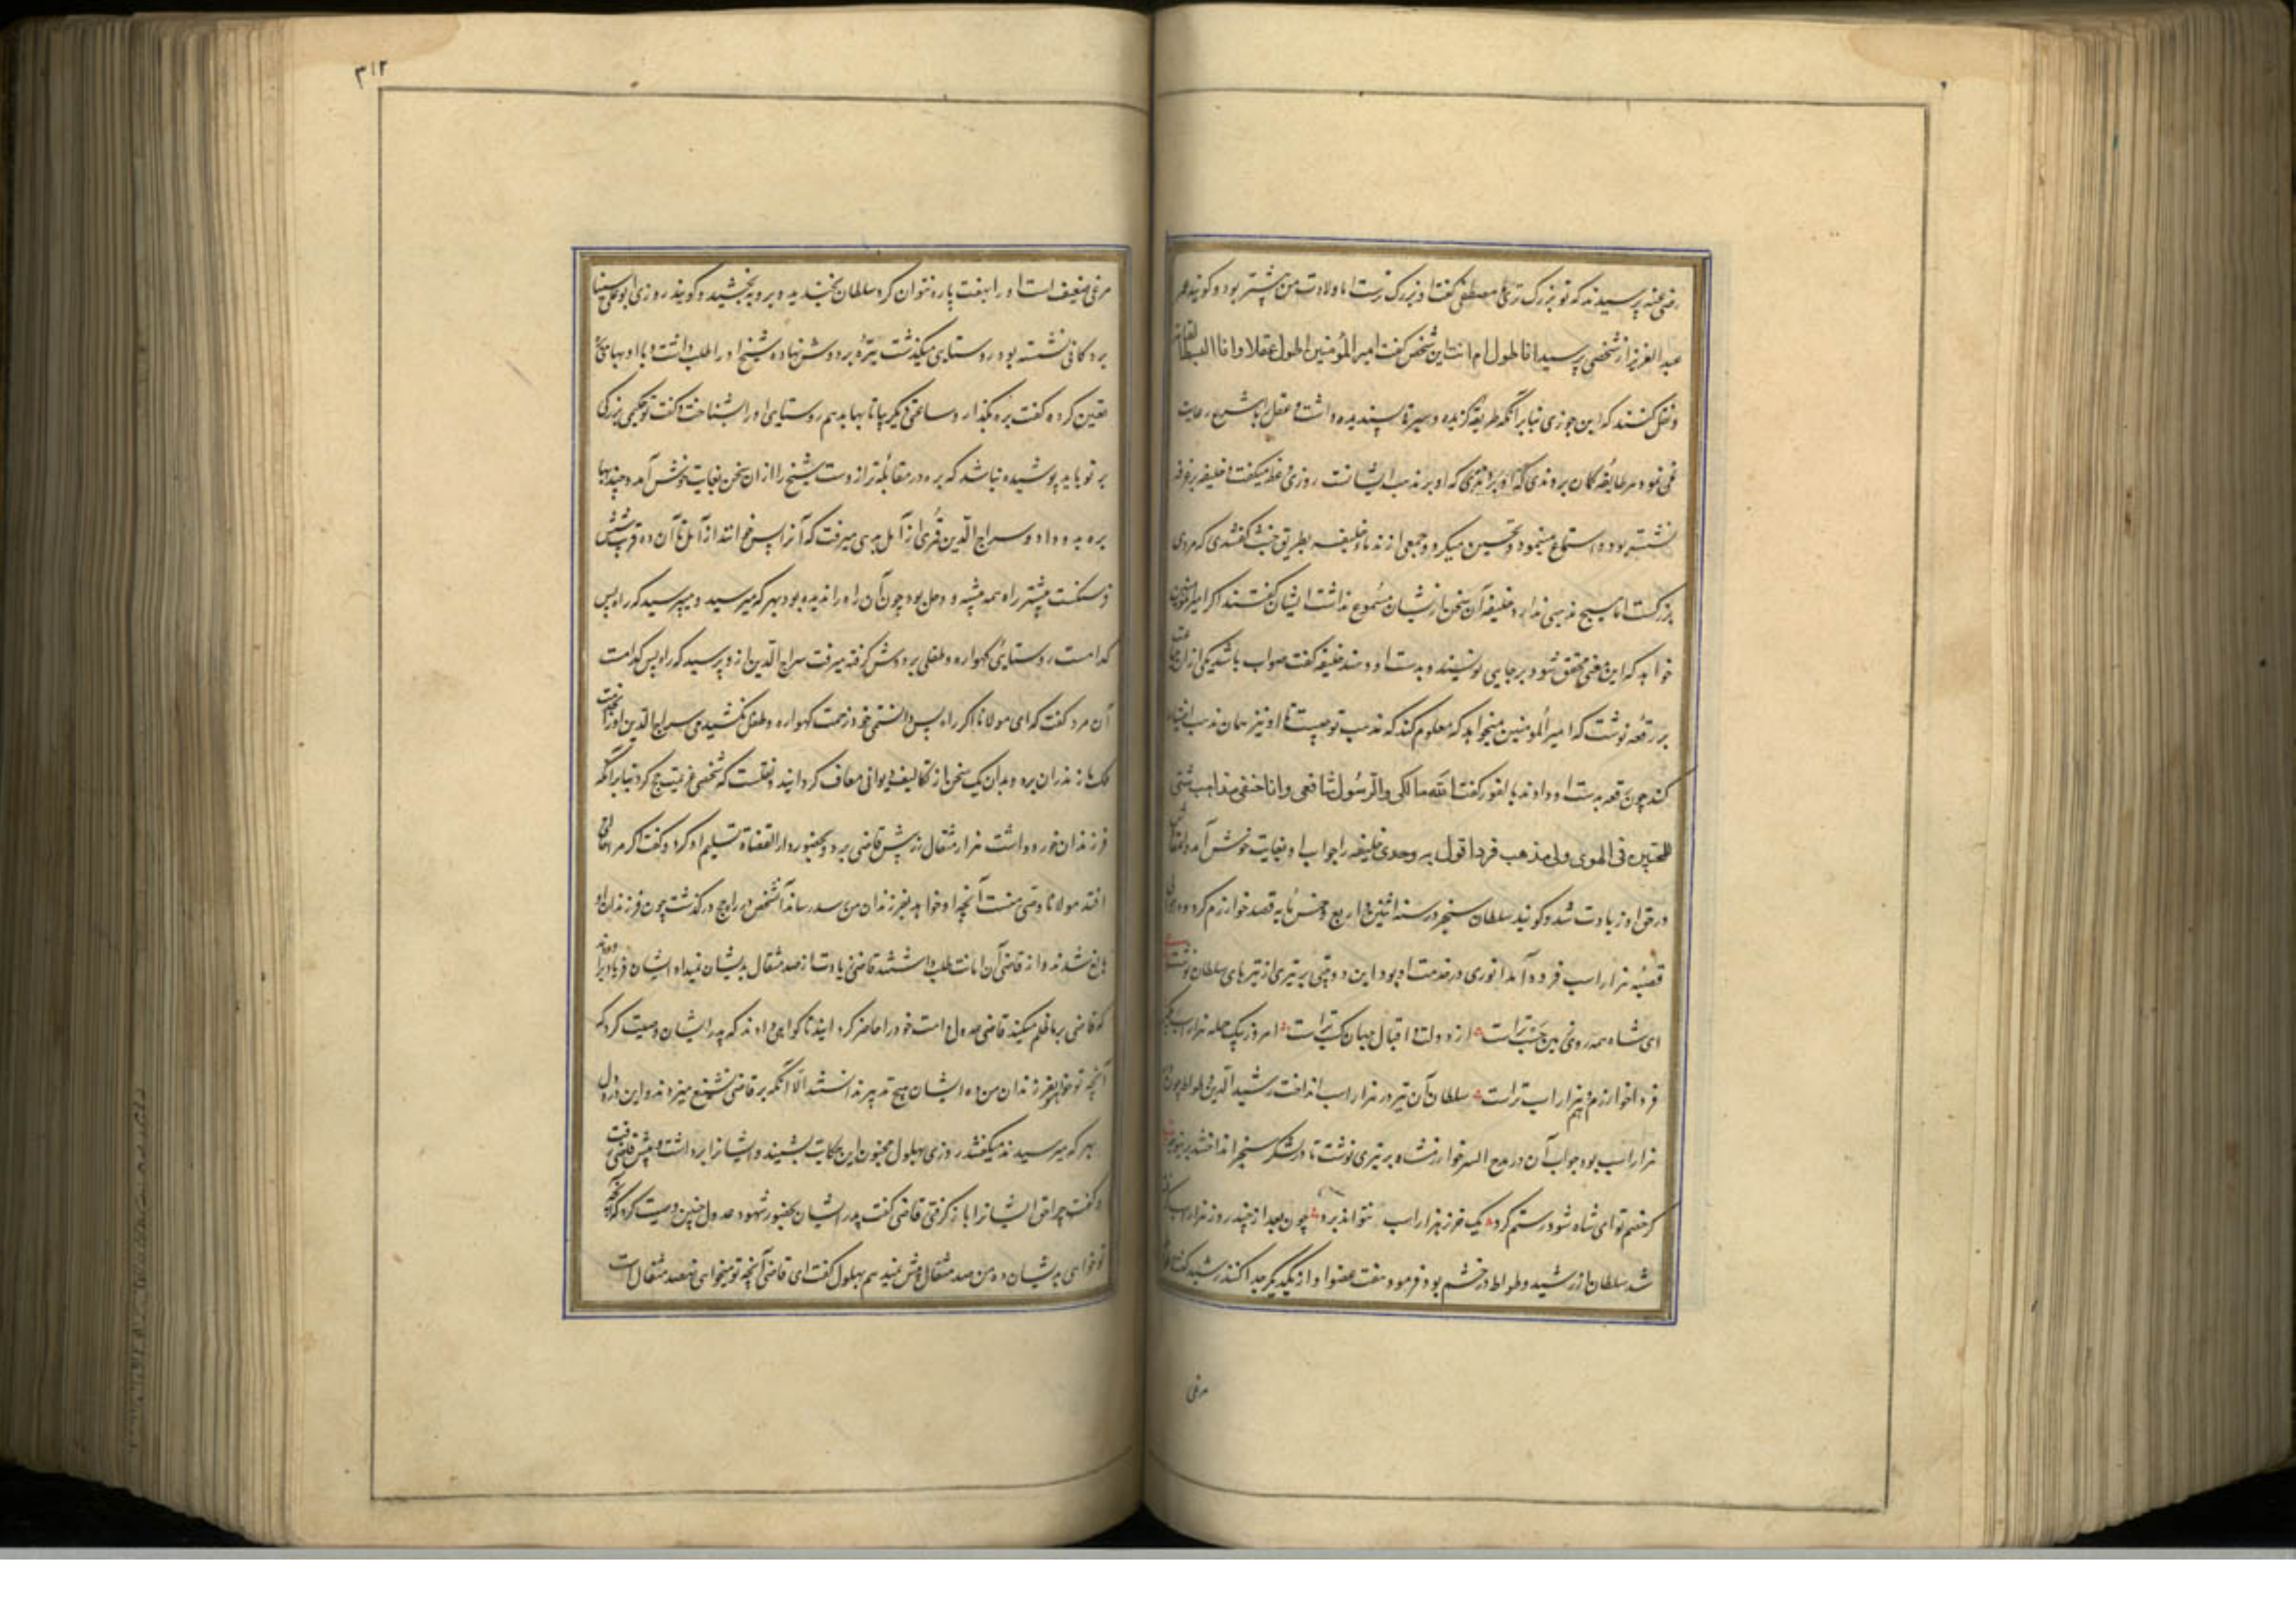 رضی عنه پرسیدند که تو بزرک تری یا مصطفی کفت او بزرک ترست اما ولادت من پیشتر بود و کویند عمر
عبد العزیز از شخصی پرسید انا اطول ام انت این شخص کفت امیر المؤمنین اطول عقلا و انا ابسط القامة
و نقل کنند که ابن جوزی بنابر آنکه طریقه کزیده و سیرة پسندیده داشت و عقل با شرع رعایت
می نمود هر طایفه کمان بردندی که او بر مذهب ایشانست روزی وعظ میکفت و خلیفه بر غرفه
نشسته بود و استماع مینمود و تحسین میکرد و جمعی از ندماء خلیفه بطریق خبث کفتندی که مردی
بزرکست اما هیچ مذهبی ندارد خلیفه آن سخن از ایشان مسموع نداشت ایشان کفتند اکر امیر المؤمنین
خواهد که این معنی محقق شود بر جایی نویسند و بدست او دهند خلیفه کفت صواب باشد یکی از آن جماعت
بر رقعه نوشت که امیر المؤمنین میخواهد که معلوم کند که مذهب تو چیست تا او نیز همان مذهب اختیار
کند چون رقعه بدست او دادند بالفور کفت الله مالکی والرسول شافعی وانا حنفی مذاهب شتی
للمحبین فی الهوی ولی مذهب فرد اقول به وحدی خلیفه را جواب او بغایت خوش آمد و التفات
در حق او زیادت شد و کویند سلطان سنجر در سنه اثنین و اربعین و خمس مایه قصد خوارزم کرد و در حوالی
قصبه هزار اسب فرود آمد انوری در خدمت او بود این دو بیتی بر تیری از تیرهای سلطان نوشت
ای شاه همه روی زمین حسب تراست از دولت و اقبال جهان کسب تراست امروز بیک حمله هزار اسب بکیر
فردا خوارزم و هزار اسب تراست سلطان آن تیر در هزار اسب انداخت رشید الدین وطواط چون در
هزار اسب بود جواب آن در مدح اتسز خوارزمشاه بر تیری نوشت تا در لشکر سنجر انداختند
کر خصم تو ای شاه شود رستم کرد یک خر ز هزار اسب نتواند برد چون بعد از چند روز هزار اسب
شد سلطان از رشید وطواط در خشم بود فرمود هفت عضو او از یکدیکر جدا کنند رشید کفت
مرغی
٣١٢
مرغی ضعیف است او را بهفت پاره نتوان کرد سلطان بخندید و برو ببخشید و کویند روزی ابو علی سینا
بر دکانی نشسته بود روستایی میکذشت بره بر دوش نهاده شیخ او را طلب داشت و با او بهای
تعین کرده کفت بره بکذار و ساعتی دیکر بیا تا بها بدهم روستایی او را بشناخت و کفت تو حکیمی بزرکی
بر تو باید پوشیده نباشد که بره در مقابله ترازوست شیخ را از آن سخن بغایت خوش آمد و چند بهای
بره بدو داد و سراج الدین قمری از آمل بدهی میرفت که آنرا پس خوانند از آمل تا آن ده قریب شش
فرسنکست بیشتر راه همه بیشه و وحل بود چون آن راه را ندیده بود بهر که میرسید میپرسید که راه پس
کدامست روستایی کهواره و طفلی بر دوش کرفته میرفت سراج الدین ازو پرسید که راه پس کدامست
آن مرد کفت که ای مولانا اکر راه پس دانستمی خود زحمت کهواره و طفل نکشیدمی سراج الدین او را بخدمت
ملک مازندران برد و بدان یک سخن از تکالیف دیوانی معاف کردانید و نقلست که شخصی عزیمت حج کرد بنابر آنکه
فرزندان خورد داشت هزار مثقال زر پیش قاضی برد و بحضور دار القضاة تسلیم او کرد و کفت اکر مرا
افتد مولانا وصی منست آنچه او خواهد بفرزندان من رساند آن شخص در راه حج در کذشت چون فرزندان او
بالغ شدند و از قاضی آن امانت طلب داشتند قاضی زیادت از صد مثقال بدیشان نمیداد ایشان فریاد
که قاضی بر ما ظلم میکند قاضی عدول امت خود را حاضر کردانید تا کواهی دادند که پدر ایشان وصیت کرد که
آنچه تو خواهی بفرزندان من ده ایشان هیچ تدبیر ندانستند الا آنکه بر قاضی تشنیع میزدند و این درد دل
بهر که میرسیدند میکفتند روزی بهلول مجنون این حکایت بشنید و ایشانرا برداشت و پیش قاضی رفت
و کفت چرا حق ایشانرا باز کرفتی قاضی کفت پدر ایشان بحضور شهود عدول چنین وصیت کرد که آنچه
تو خواهی بدیشان ده من صد مثقال بیش نمیدهم بهلول کفت ای قاضی آنچه تو میخواهی نهصد مثقال است